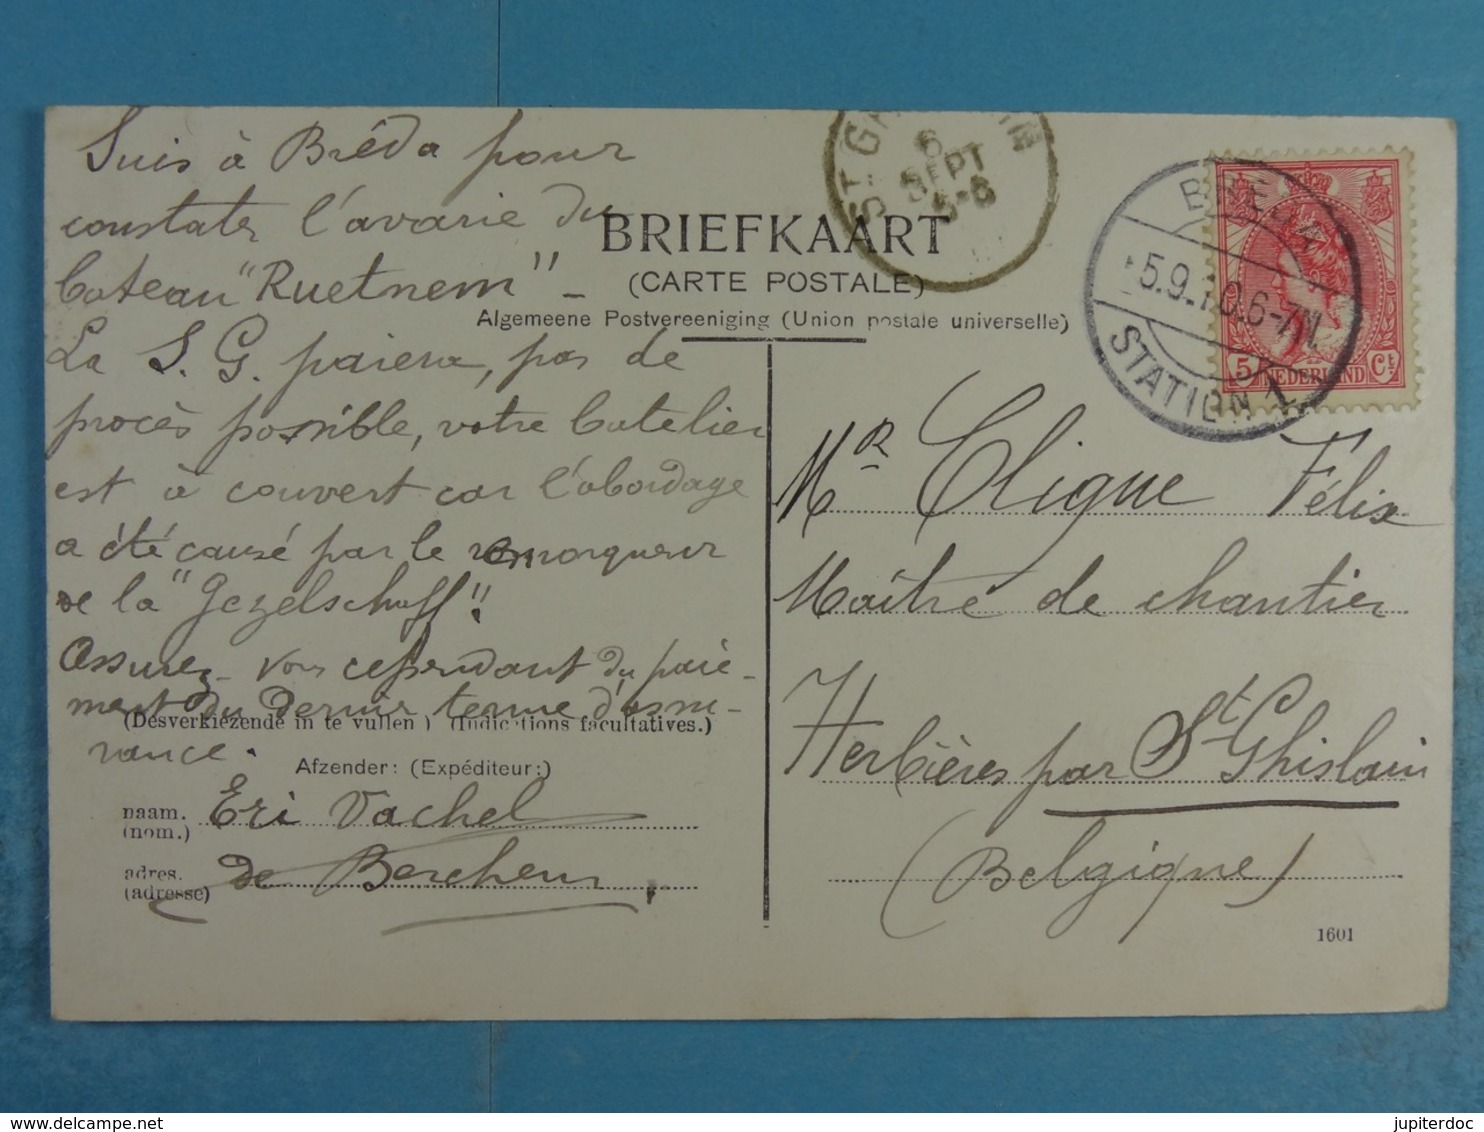 Suis à Bréda pour
constater l'avarie du
bateau "Ruetnem" -
La S. G. paiera, pas de
procès possible, votre batelier
est à couvert car l'abordage
a été causé par le remorqueur
de la "Gezelschaff".
Assurez-vous cependant du paie-
ment du dernier terme d'assu-
rance.
BRIEFKAART
(CARTE POSTALE)
Algemeene Postvereeniging (Union postale universelle)
(Desverkiezende in te vullen) (Indications facultatives.)
Afzender: (Expéditeur:)
naam. (nom.) Eri Vachel
adres. (adresse) de Berchem
ST GH IN
6
SEPT
5-6
BREDA
5.9.10.6-7N
STATION 1
5 NEDERLAND Ct
Mr Clique Félix
Maître de chantier
Herbières par St Ghislain
(Belgique)
1601
jupiterdoc